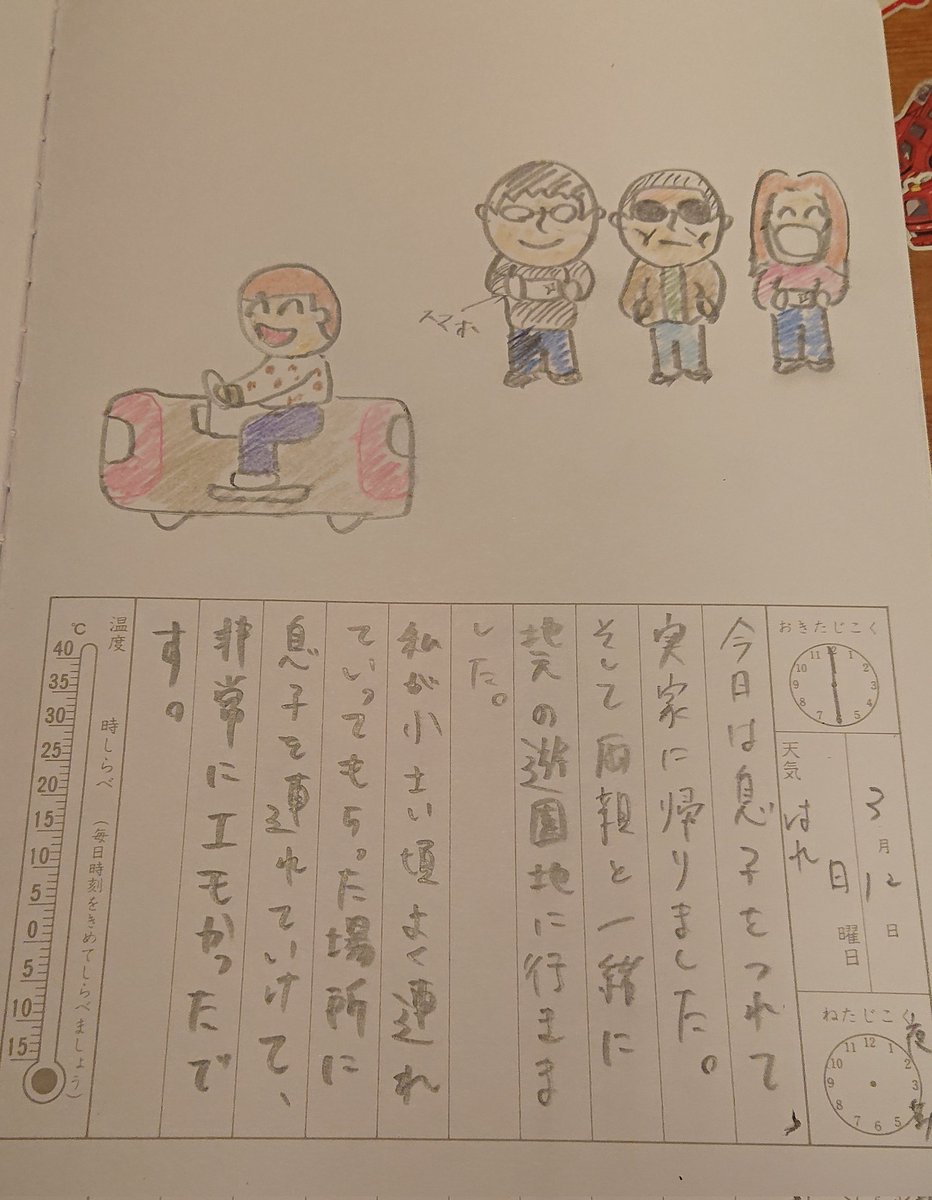 スマホ
おきたじこく
12 1 2 3 4 5 6 7 8 9 10 11
3月12日
日曜日
天気 はれ
ねたじこく
夜勤
12 1 2 3 4 5 6 7 8 9 10 11
今日は息子をつれて、
実家に帰りました。
そして両親と一緒に
地元の遊園地に行きま
した。
私が小さい頃よく連れ
ていってもらった場所に
息子を連れていけて、
非常にエモかったで
す。
温度 時しらべ (毎日時刻をきめてしらべましょう)
℃
40
35
30
25
20
15
10
5
0
5
10
15